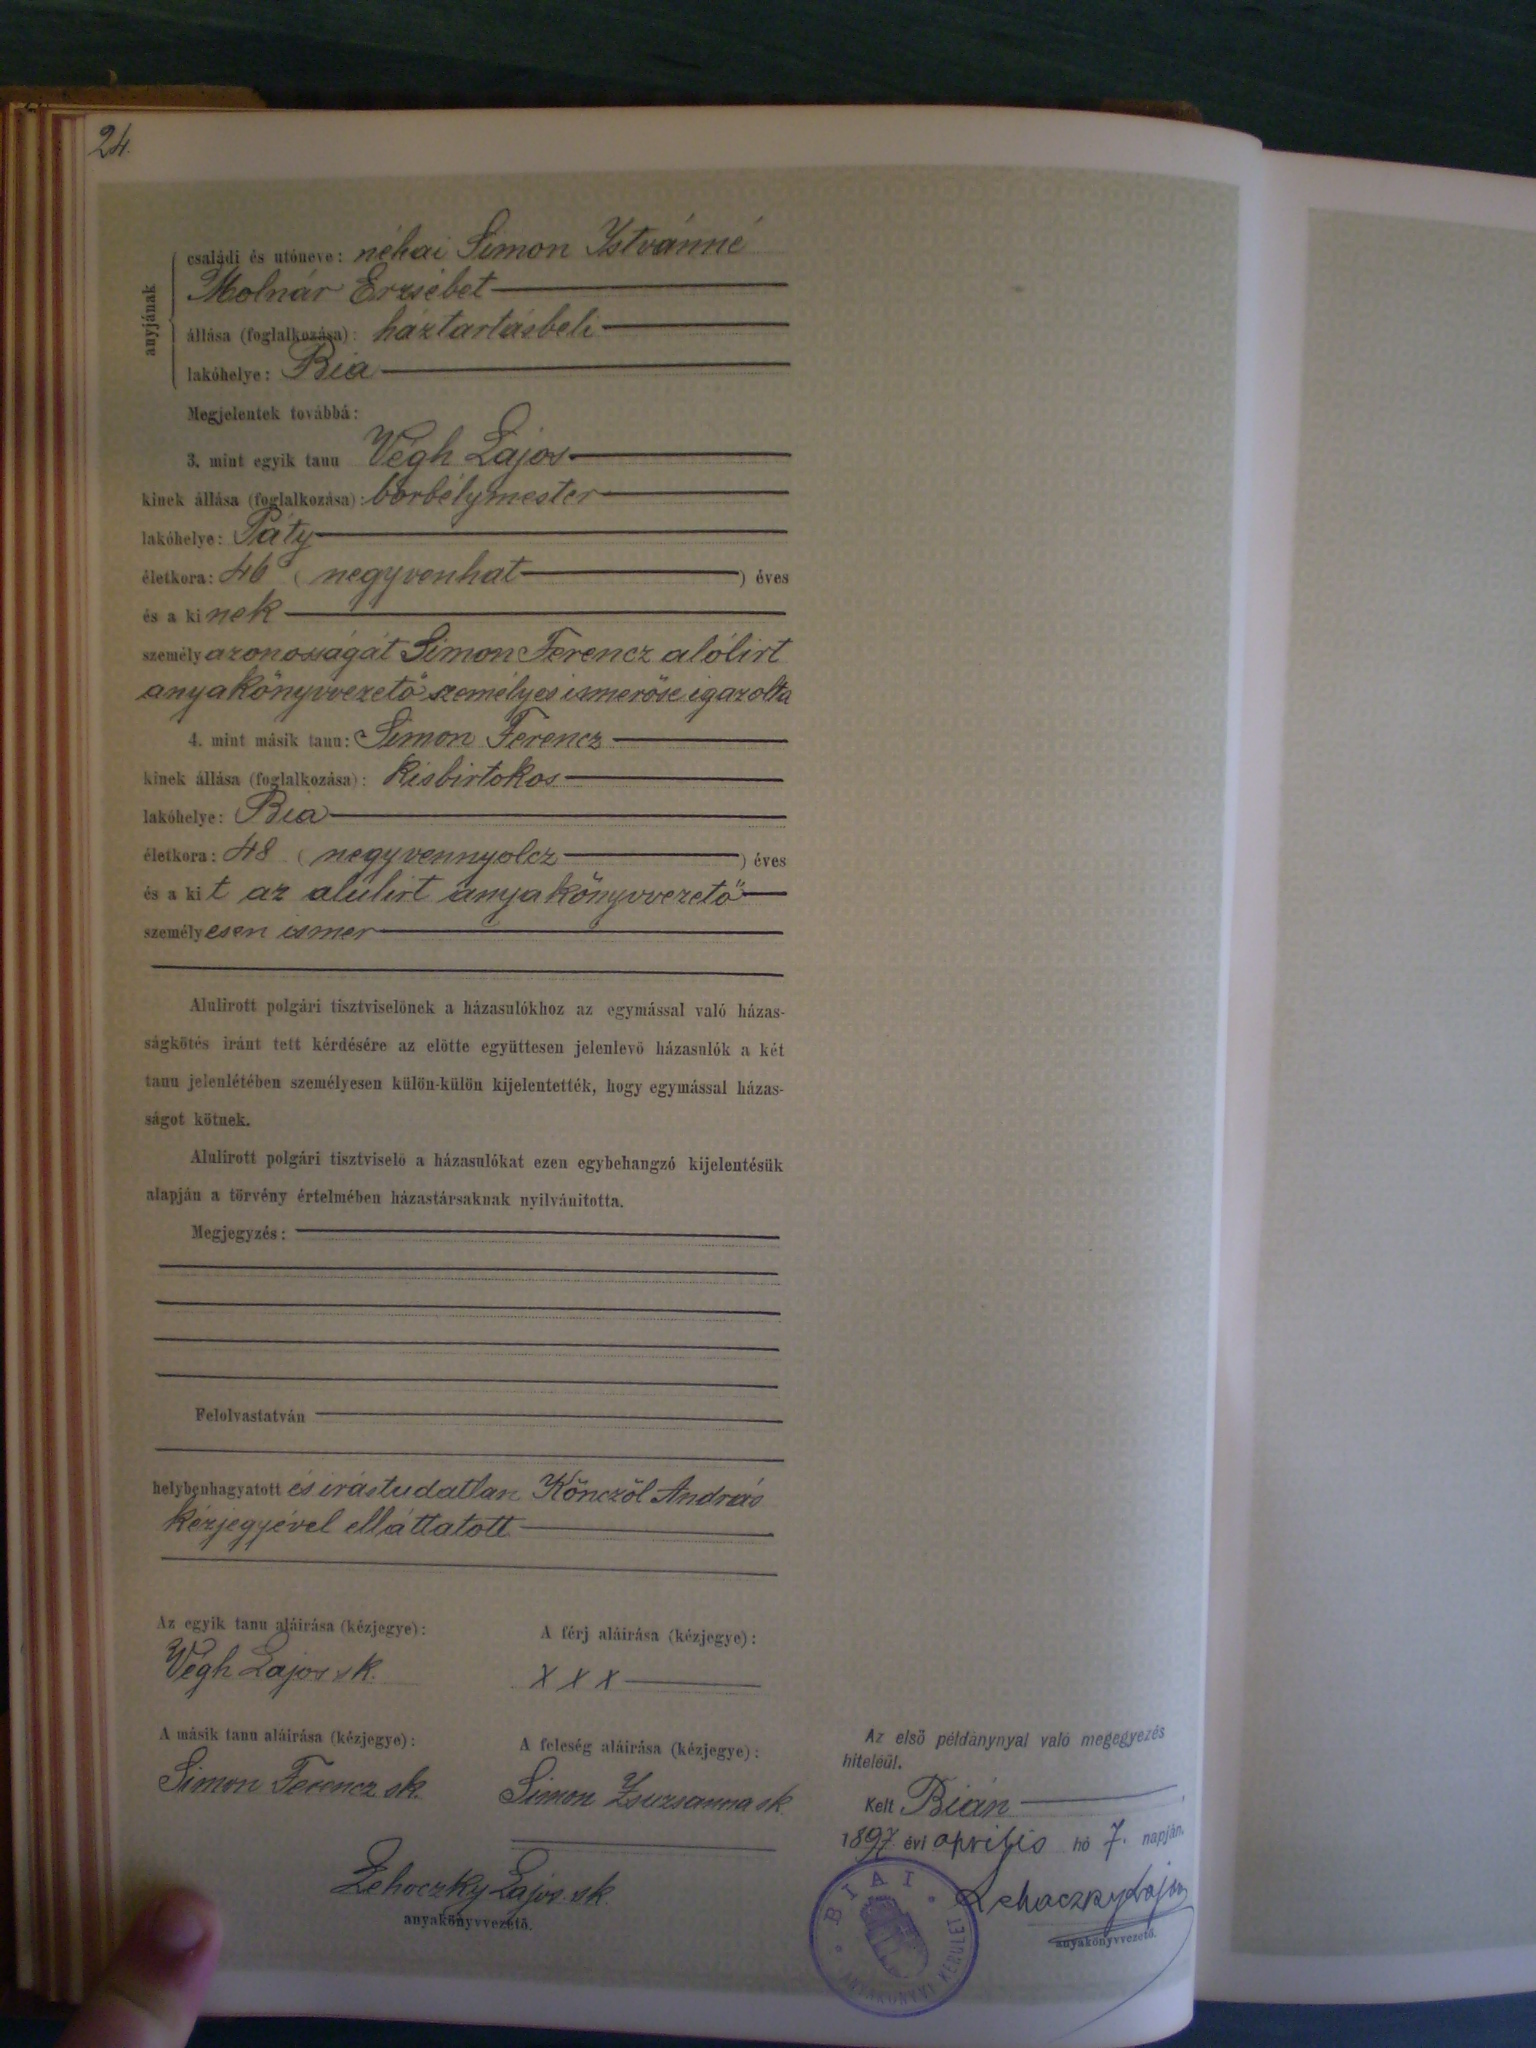 24.
anyjának
családi és utóneve: néhai Simon Istvánné
Molnár Erzsébet
állása (foglalkozása): háztartásbeli
lakóhelye: Bia
Megjelentek továbbá:
3. mint egyik tanu Végh Lajos
kinek állása (foglalkozása): borbélymester
lakóhelye: Páty
életkora: 46 (negyvenhat) éves
és a kinek
személyazonosságát Simon Ferencz alólirt
anyakönyvvezető személyes ismerőse igazolta
4. mint másik tanu: Simon Ferencz
kinek állása (foglalkozása): kisbirtokos
lakóhelye: Bia
életkora: 48 (negyvennyolcz) éves
és a kit az alulirt anyakönyvvezető
személyesen ismer
Alulirott polgári tisztviselönek a házasulókhoz az egymással való házas-
ságkötés iránt tett kérdésére az elötte együttesen jelenlevö házasulók a két
tanu jelenlétében személyesen külön-külön kijelentették, hogy egymással házas-
ságot kötnek.
Alulirott polgári tisztviselö a házasulókat ezen egybehangzó kijelentésük
alapján a törvény értelmében házastársaknak nyilvánitotta.
Megjegyzés:
Felolvastatván
helybenhagyatott és irástudatlan Könczöl András
kézjegyével elláttatott
Az egyik tanu aláirása (kézjegye):
Végh Lajos sk.
A férj aláirása (kézjegye):
X X X
A másik tanu aláirása (kézjegye):
Simon Ferencz sk.
A feleség aláirása (kézjegye):
Simon Zsuzsanna sk.
Lehoczky Lajos sk.
anyakönyvvezetö.
Az első példánynyal való megegyezés
hiteléül.
Kelt Bián
1897. évi április hó 7. napján.
Lehoczky Lajos
anyakönyvvezető.
BIAI
ANYAKÖNYVI KERÜLET